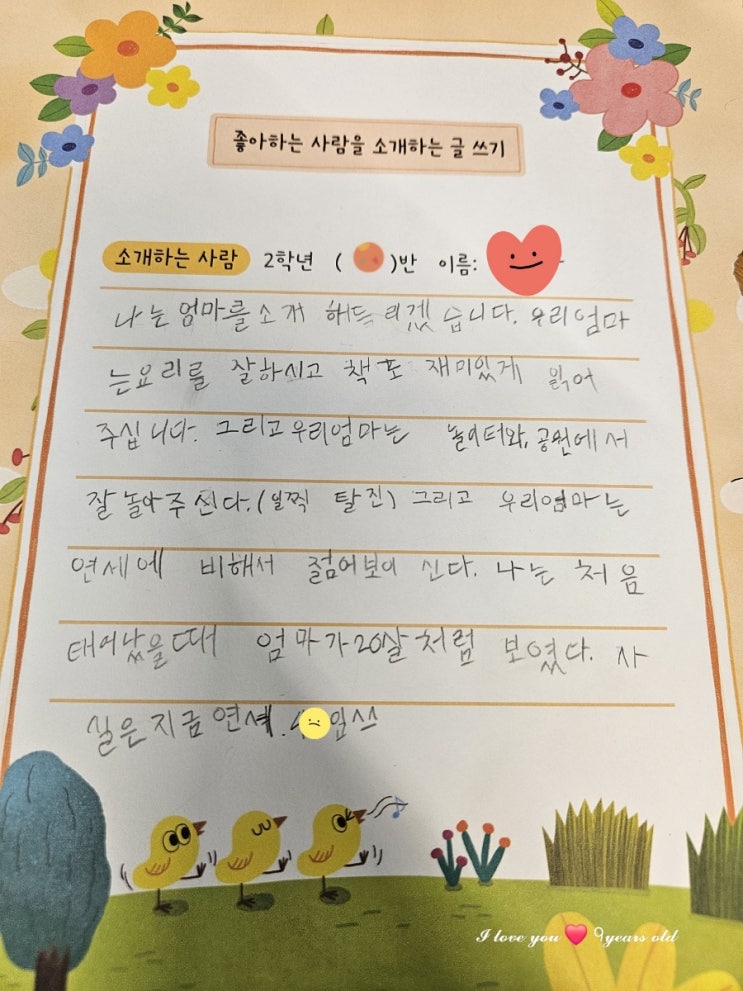 좋아하는 사람을 소개하는 글 쓰기
소개하는 사람 2학년 ( )반 이름:
나는 엄마를 소개 해드리겠습니다. 우리엄마
는요리를 잘하시고 책도 재미있게 읽어
주십니다. 그리고우리엄마는 놀이터와, 공원에서
잘놀아주신다.(일찍 탈진) 그리고 우리엄마는
연세에 비해서 젊어보이신다. 나는 처음
태어났을때 엄마가20살처럼 보였다. 사
실은지금연세. 임쓰
I love you 9years old